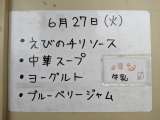 6月27日(火)
・えびのチリソース
・中華スープ
・ヨーグルト
・ブルーベリージャム
牛乳